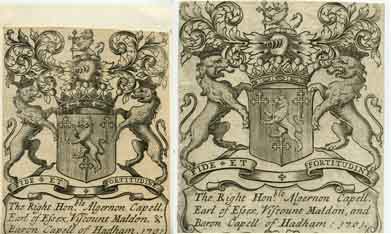 FIDE ET FORTITUDIN
The Right Hon.ble Algernon Capell,
Earl of Essex, Viscount Maldon, &
Baron Capell of Hadham: 1701
FIDE ET FORTITUDIN
The Right Hon.ble Algernon Capell.
Earl of Essex, Viscount Maldon, and
Baron Capell of Hadham: 1701